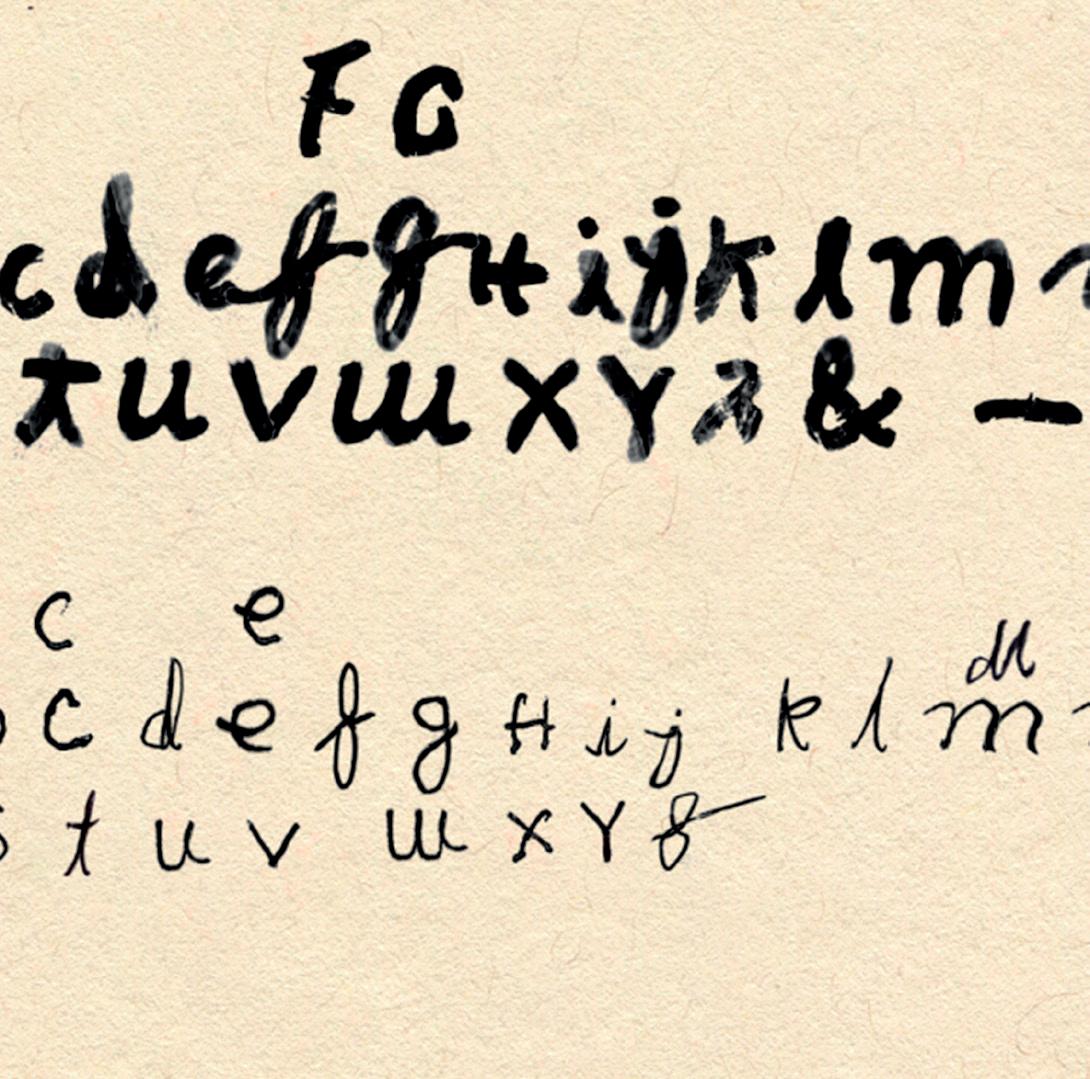 F G
c d e f g H i j k l m
t u v w x Y z & —
c e
c d e f g H i j k l m
s t u v w x Y z